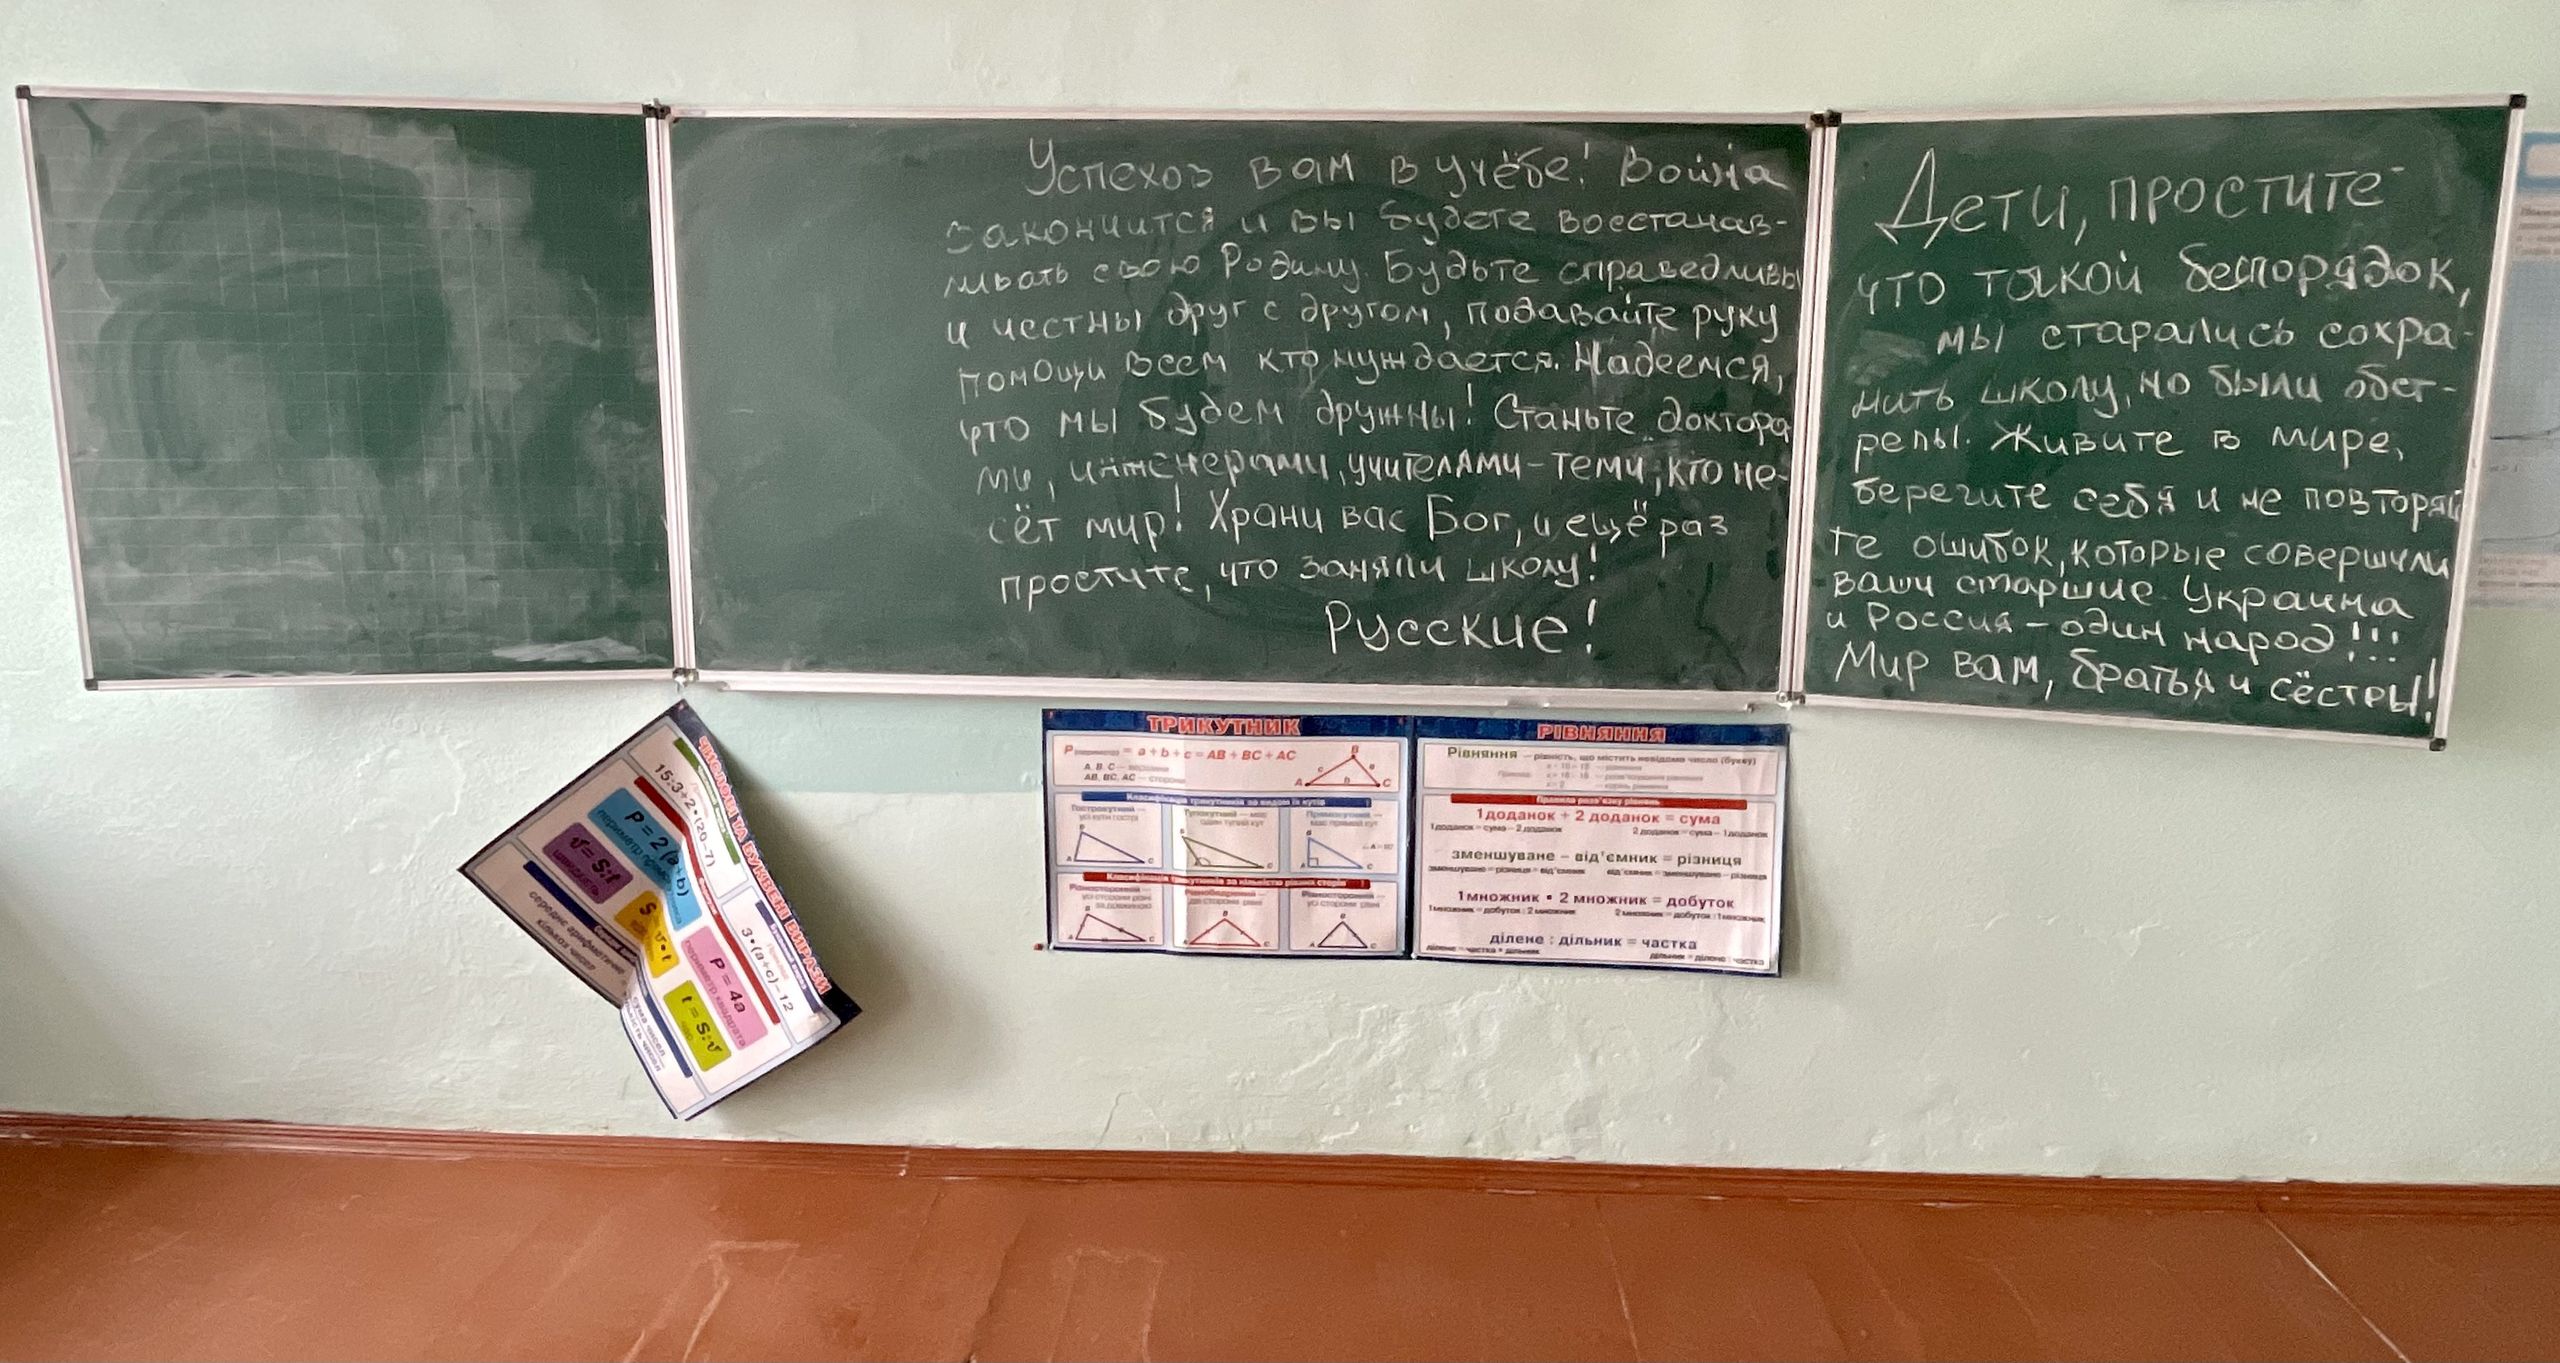 Успехов вам в учёбе! Война
закончится и вы будете восстанав-
ливать свою Родину. Будьте справедливы
и честны друг с другом, подавайте руку
помощи всем кто нуждается. Надеемся,
что мы будем дружны! Станьте доктора
ми, инженерами, учителями - теми, кто не-
сёт мир! Храни вас Бог, и ещё раз
простите, что заняли школу!
Русские!
Дети, простите
что такой беспорядок,
мы старались сохра-
нить школу, но были обст-
релы. Живите в мире,
берегите себя и не повторяй
те ошибок, которые совершили
ваши старшие. Украина
и Россия - один народ!!!
Мир вам, братья и сёстры!
ЧИСЛОВІ ТА БУКВЕНІ ВИРАЗИ
15:3+2•(20-7)
3•(a+c)-12
P = 2(a+b)
периметр прямокутника
P = 4a
периметр квадрата
v = S:t
швидкість
S = v•t
t = S:v
час
середнє арифметичне
кількох чисел
сума чисел
кількість чисел
ТРИКУТНИК
P = a + b + c = AB + BC + AC
A, B, C — вершини
AB, BC, AC — сторони
B
c a
A b C
Класифікація трикутників за видом їх кутів
Гострокутний —
усі кути гострі
Тупокутний — має
один тупий кут
Прямокутний —
має прямий кут
Класифікація трикутників за кількістю рівних сторін
Різносторонній —
усі сторони різні
за довжиною
Рівнобедрений —
дві сторони рівні
Рівносторонній —
усі сторони рівні
РІВНЯННЯ
Рівняння – рівність, що містить невідоме число (букву)
Правила розв'язку рівнянь
1 доданок + 2 доданок = сума
1 доданок = сума – 2 доданок 2 доданок = сума – 1 доданок
зменшуване – від'ємник = різниця
зменшуване = різниця + від'ємник від'ємник = зменшуване – різниця
1 множник • 2 множник = добуток
1 множник = добуток : 2 множник 2 множник = добуток : 1 множник
ділене : дільник = частка
ділене = частка • дільник дільник = ділене : частка